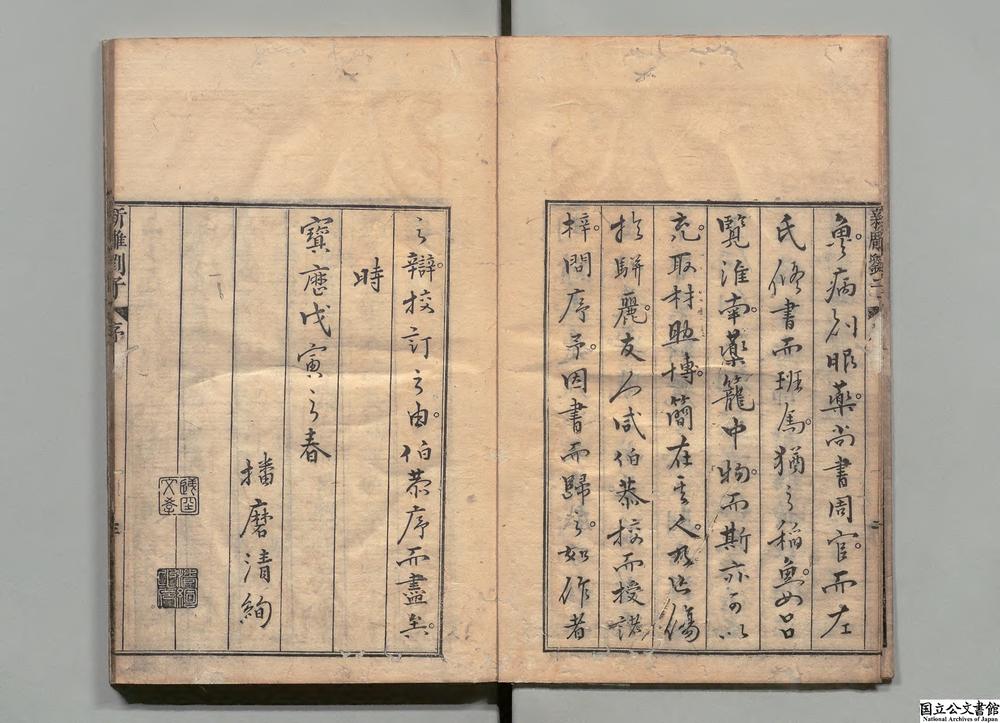 魚病則眼藥尚書周官而左
氏脩書而班馬猶之稻魚如呂
覽淮南藥籠中物而斯亦可以
充取材助博簡在其人
於駢麗友人咸伯恭校而授諸
梓問序予因書而歸之如作者
之辯校訂之由伯恭序而盡矣
時
寶曆戊寅之春
播磨清絢
新雕劉子
序
国立公文書館
National Archives of Japan